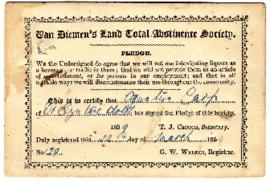 Van Diemen's Land Total Abstinence Society.
PLEDGE.
We the Undersigned do agree that we will not use Intoxicating liquors as
a beverage, or traffic in them; that we will not provide them as an article
of entertainment, or for persons in our employment; and that in all
suitable ways we will discountenance their use throughout the community.
This is to certify that
has signed the Pledge of this Society
1859 T. J. CROUCH, Secretary.
Duly registered this 22 day of March 185
No. G. W. WALKER, Registrar.